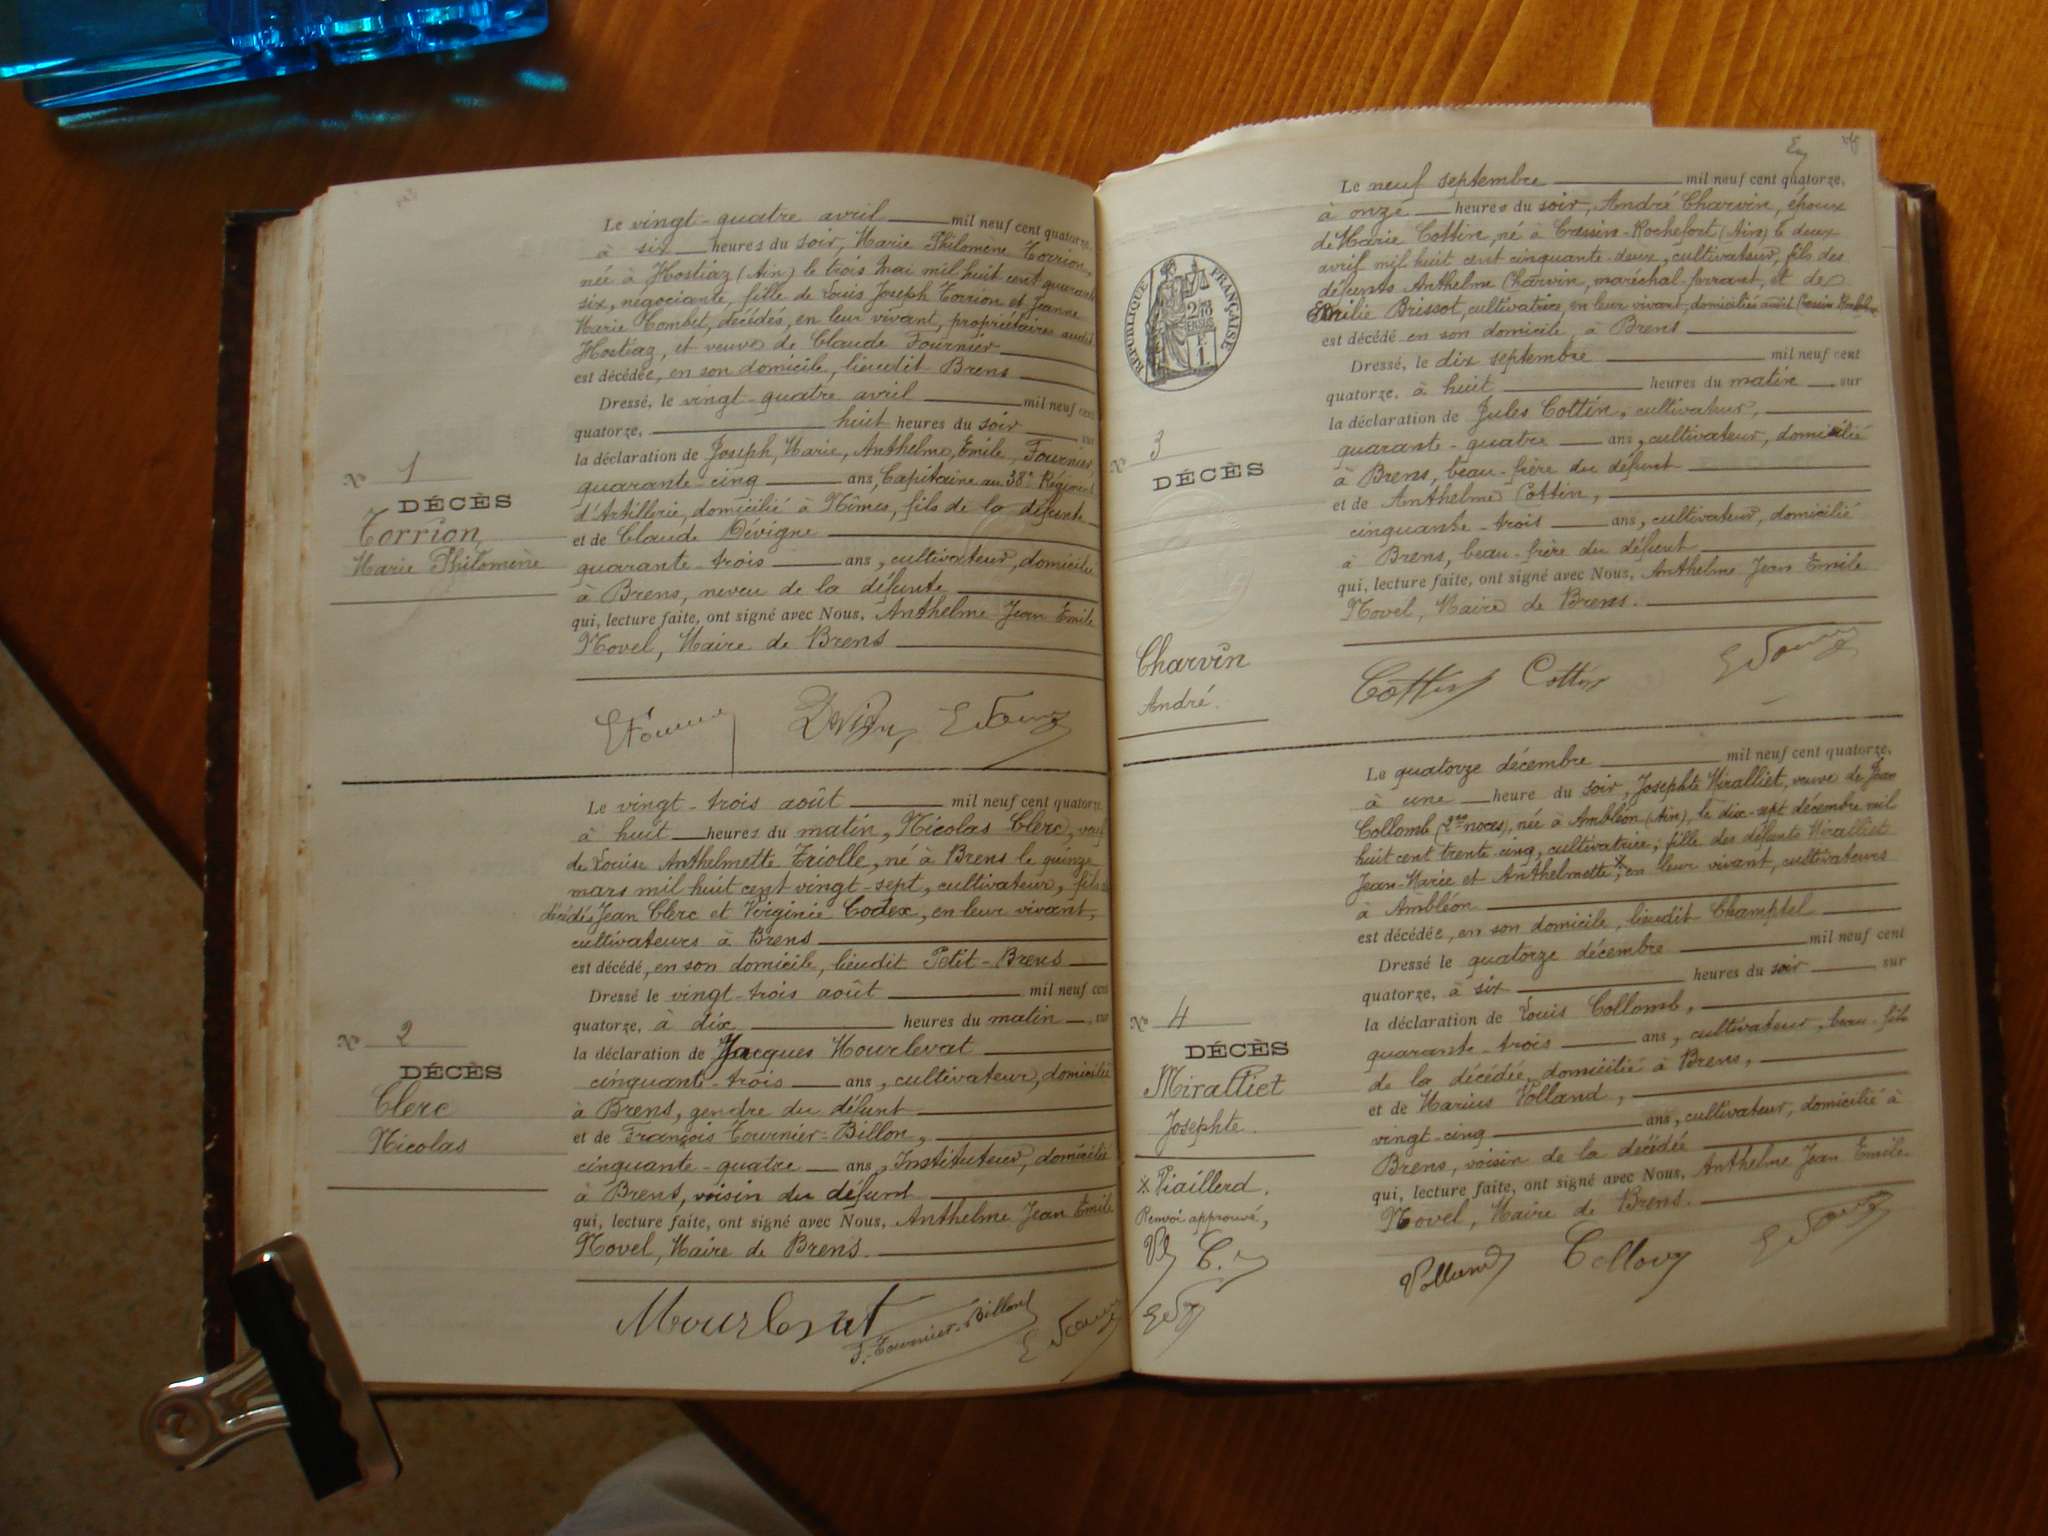 Le vingt-quatre avril mil neuf cent quatorze,
à six heures du soir, Marie Philomène Torrion,
née à Hostiaz (Ain) le trois Mai mil huit cent quarante
six, négociante, fille de Louis Joseph Torrion et Jeanne
Marie Combet, décédés, en leur vivant, propriétaires audit
Hostiaz, et veuve de Claude Fournier
est décédée, en son domicile, lieudit Brens
Dressé, le vingt-quatre avril mil neuf cent
quatorze, huit heures du soir sur
la déclaration de Joseph, Marie, Anthelme, Emile, Fournier,
quarante-cinq ans, Capitaine au 38e Régiment
d'Artillerie, domicilié à Nîmes, fils de la défunte
et de Claude Dévigne
quarante-trois ans, cultivateur, domicilié
à Brens, neveu de la défunte
qui, lecture faite, ont signé avec Nous, Anthelme Jean Emile
Novel, Maire de Brens
N° 1
DÉCÈS
Torrion,
Marie Philomène
Le vingt-trois août mil neuf cent quatorze,
à huit heures du matin, Nicolas Clerc, veuf
de Louise Anthelmette Triolle, né à Brens le quinze
mars mil huit cent vingt-sept, cultivateur, fils
décédés Jean Clerc et Virginie Codex, en leur vivant,
cultivateurs à Brens
est décédé, en son domicile, lieudit Petit-Brens
Dressé le vingt-trois août mil neuf cent
quatorze, à dix heures du matin sur
la déclaration de Jacques Mourlevat
cinquante-trois ans, cultivateur, domicilié
à Brens, gendre du défunt
et de François Tournier-Billon,
cinquante-quatre ans, Instituteur, domicilié
à Brens, voisin du défunt
qui, lecture faite, ont signé avec Nous, Anthelme Jean Emile
Novel, Maire de Brens.
Mourlevat
F. Tournier-Billon
N° 2
DÉCÈS
Clerc
Nicolas
RÉPUBLIQUE FRANÇAISE
Le neuf septembre mil neuf cent quatorze,
à onze heures du soir, André Charvin, époux
de Marie Cottin, né à Cressin-Rochefort (Ain) le deux
avril mil huit cent cinquante-deux, cultivateur, fils des
défunts Anthelme Charvin, maréchal ferrant, et de
Emilie Brissot, cultivatrice, en leur vivant, domiciliés audit Cressin Rochefort
est décédé en son domicile, à Brens
Dressé, le dix septembre mil neuf cent
quatorze, à huit heures du matin sur
la déclaration de Jules Cottin, cultivateur,
quarante-quatre ans, cultivateur, domicilié
à Brens, beau-frère du défunt
et de Anthelme Cottin,
cinquante-trois ans, cultivateur, domicilié
à Brens, beau-frère du défunt
qui, lecture faite, ont signé avec Nous, Anthelme Jean Emile
Novel, Maire de Brens.
Cottin Cottin
N° 3
DÉCÈS
Charvin
André.
Le quatorze décembre mil neuf cent quatorze,
à une heure du soir, Josephte Miralliet, veuve de Jean
Collomb (2mes noces), née à Ambléon (Ain), le dix-sept décembre mil
huit cent trente-cinq, cultivatrice, fille des défunts Miralliet
Jean-Marie et Anthelmette X, en leur vivant, cultivateurs
à Ambléon
est décédée, en son domicile, lieudit Champtel
Dressé le quatorze décembre mil neuf cent
quatorze, à six heures du soir sur
la déclaration de Louis Collomb,
quarante-trois ans, cultivateur, beau-fils
de la décédée, domicilié à Brens,
et de Marius Volland,
vingt-cinq ans, cultivateur, domicilié à
Brens, voisin de la décédée
qui, lecture faite, ont signé avec Nous, Anthelme Jean Emile
Novel, Maire de Brens.
Volland Collomb
N° 4
DÉCÈS
Miralliet
Josephte.
X Piaillerd.
Renvoi approuvé,